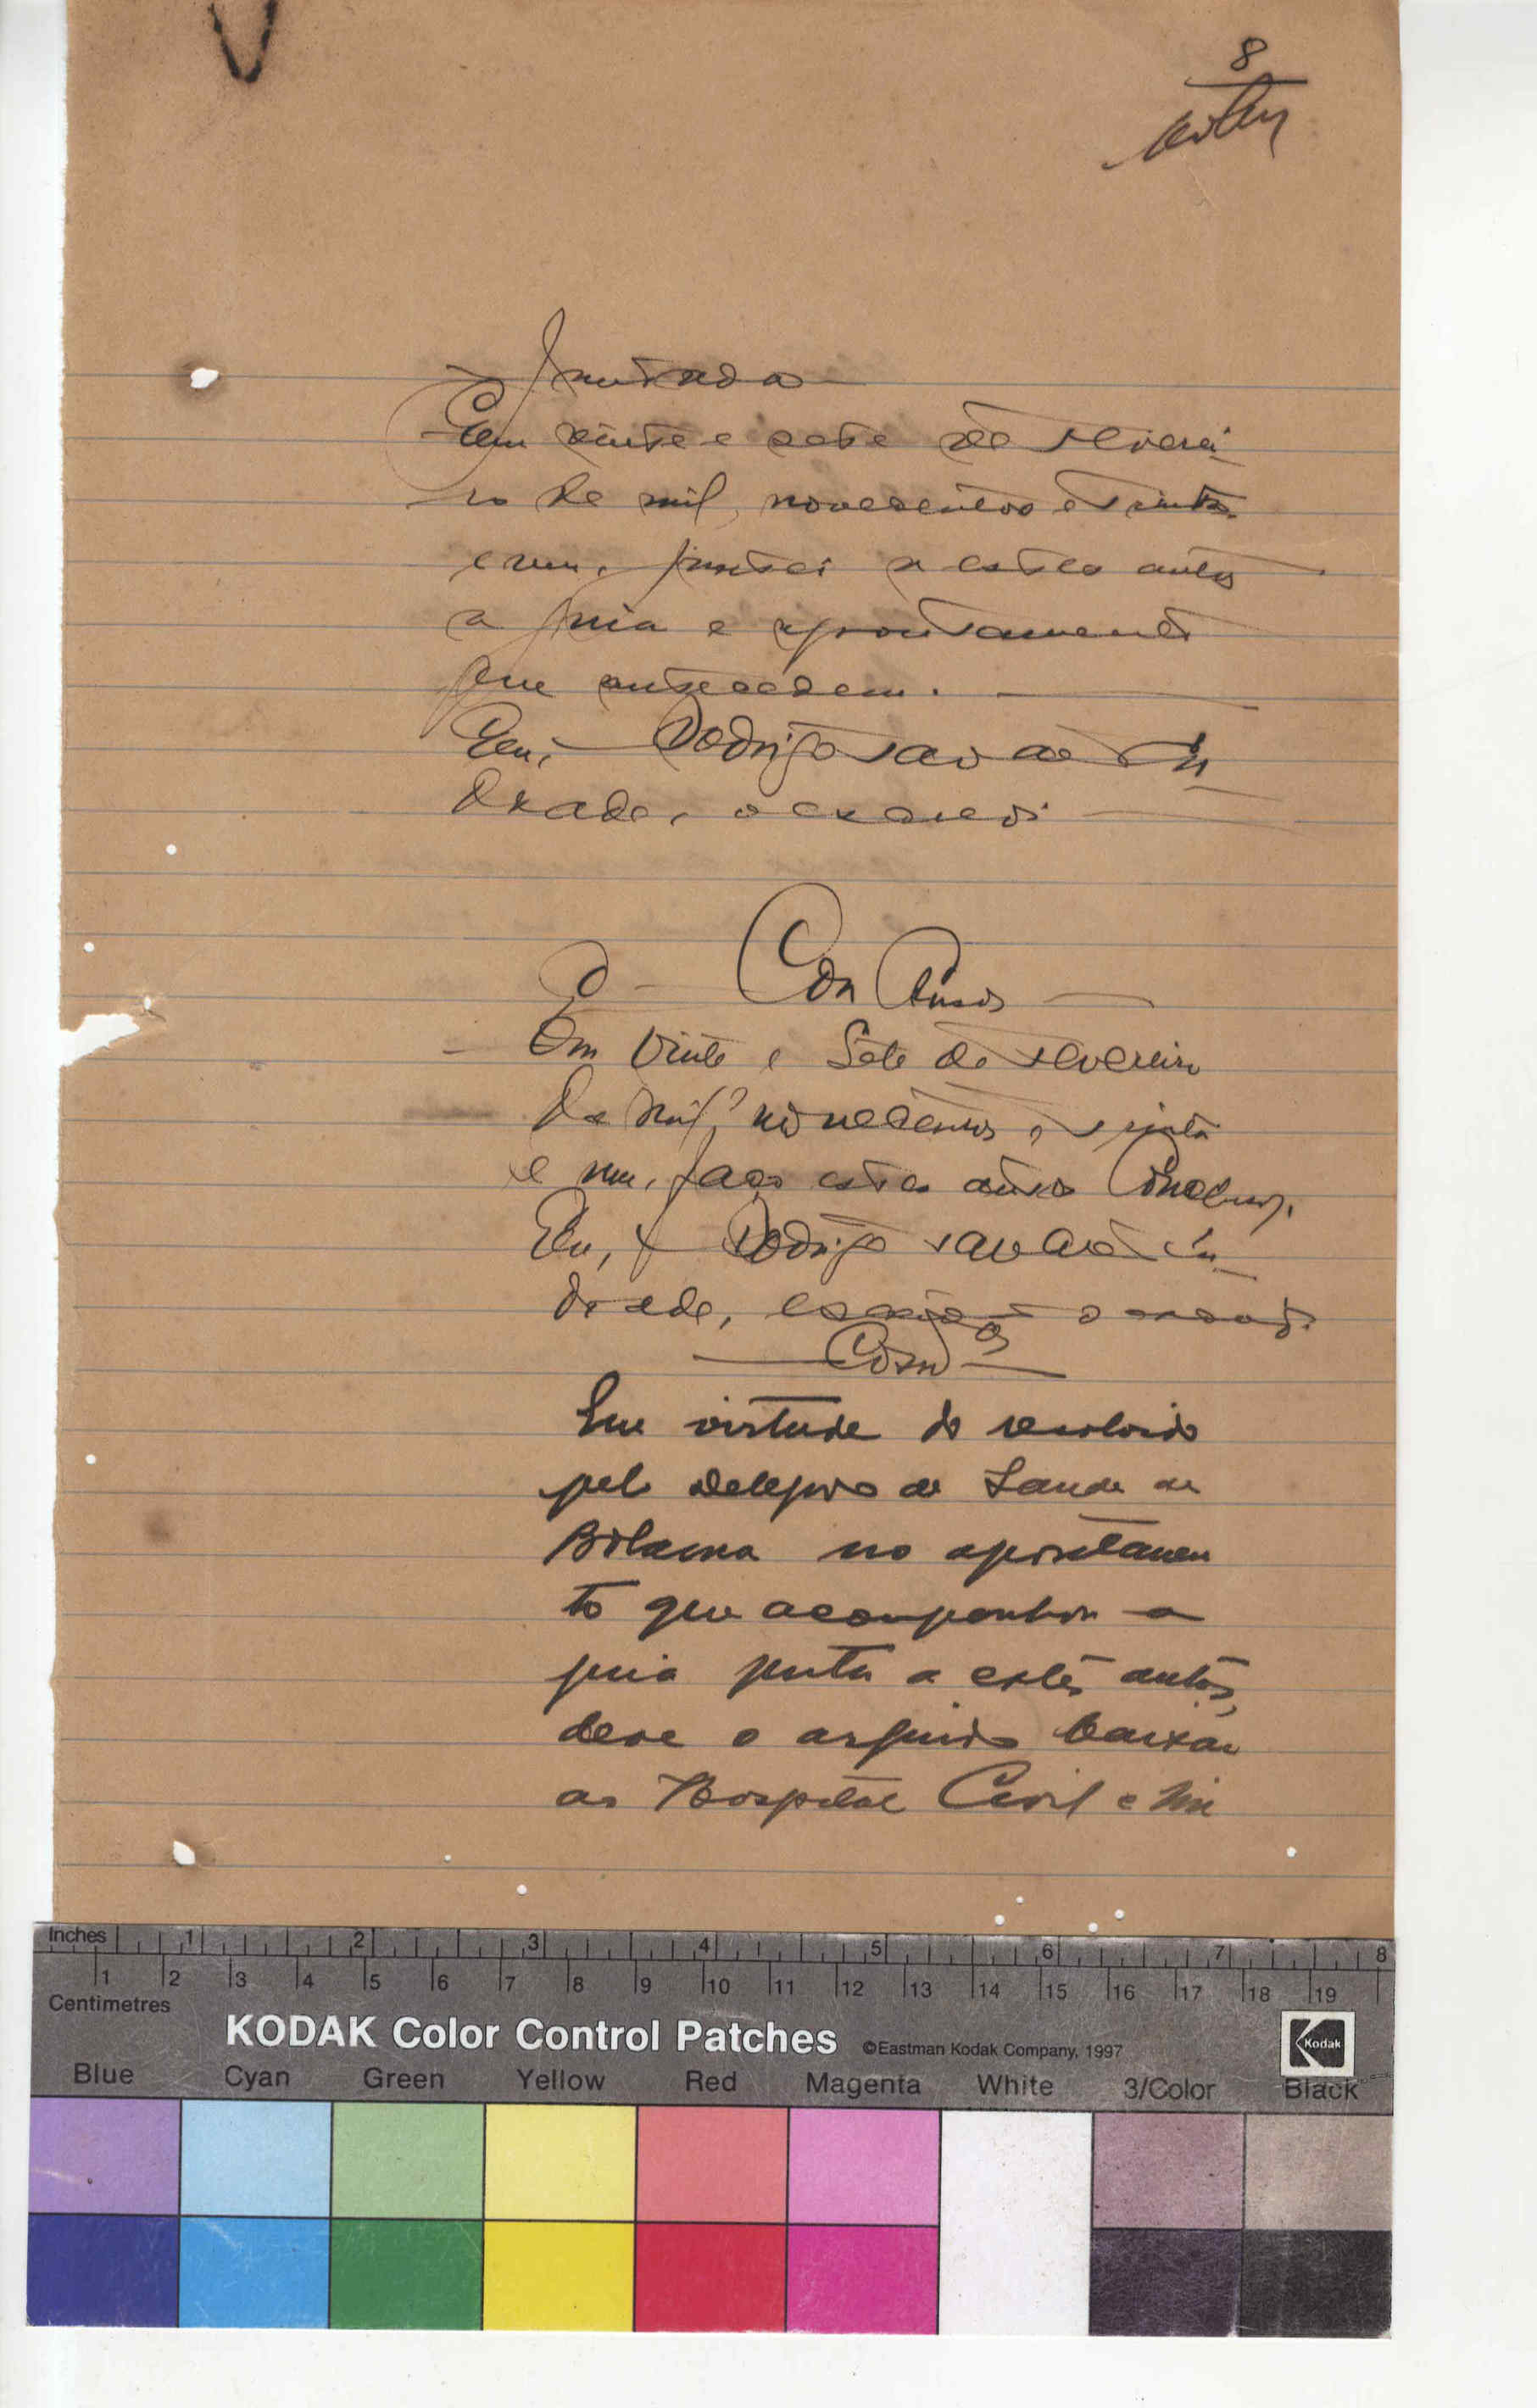 8
Juntada
Em vinte e sete de Feverei
ro de mil novecentos e trinta
e um, juntei a estes autos
a guia e apontamento
que antecedem.
Eu, Rodrigo Xavier de An
drade, o escrevi
Conclusos
Em vinte e sete de Fevereiro
de mil novecentos e trinta
e um, faço estes autos conclusos.
Eu, Rodrigo Xavier de An
drade, escrivão o escrevi.
Em virtude do resolvido
pelo Delegado de Saude de
Bolama no apontamen
to que acompanhou a
guia junta a estes autos,
deve o arguido baixar
ao Hospital Civil e Mi
Inches 1 2 3 4 5 6 7 8
1 2 3 4 5 6 7 8 9 10 11 12 13 14 15 16 17 18 19
Centimetres
KODAK Color Control Patches ©Eastman Kodak Company, 1997 Kodak
Blue Cyan Green Yellow Red Magenta White 3/Color Black